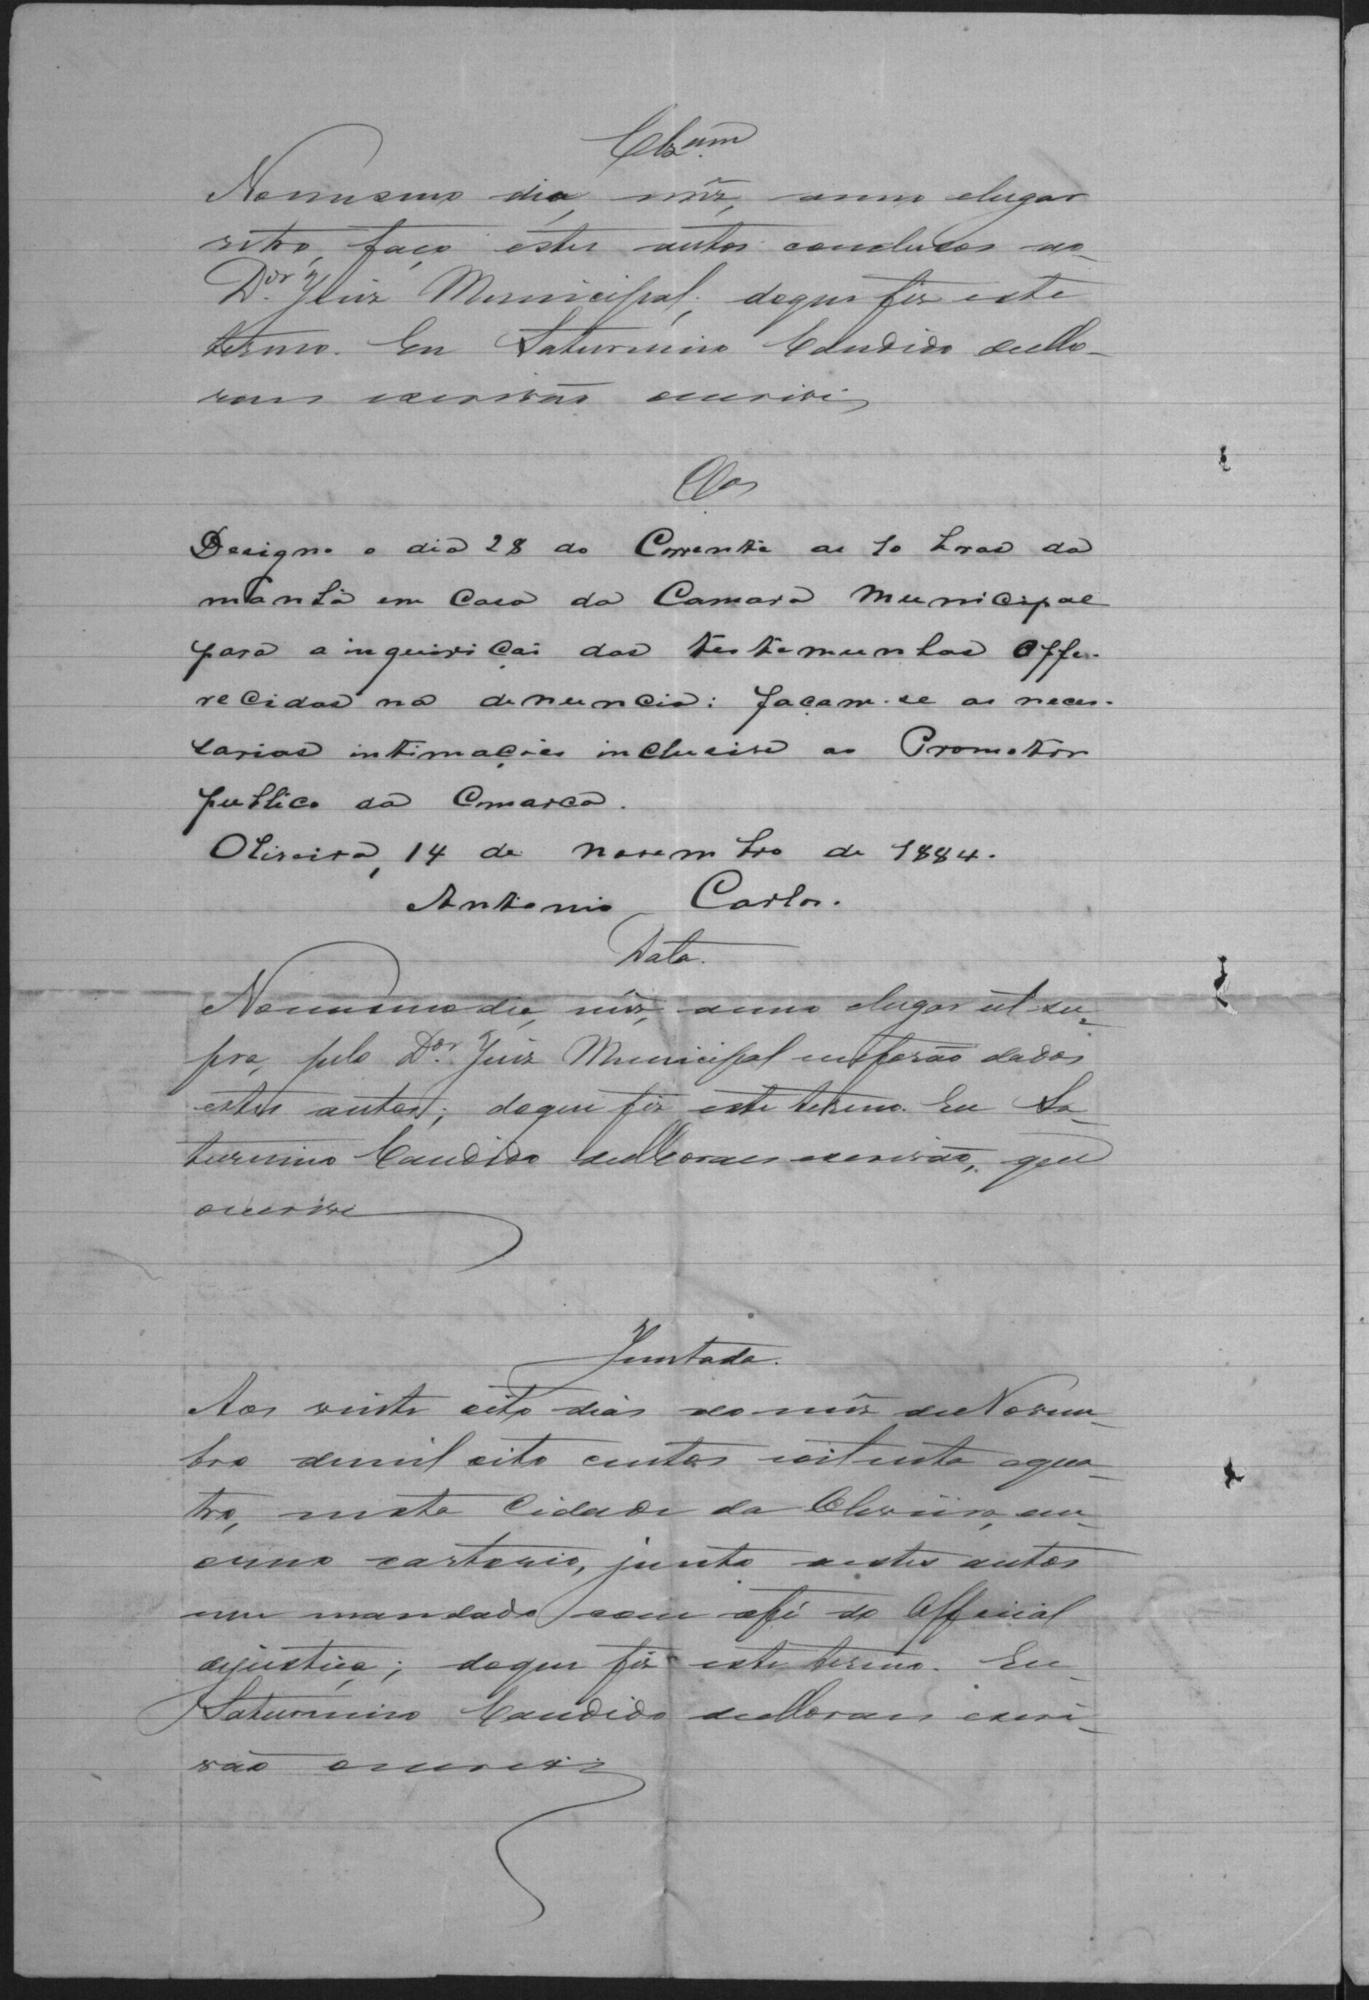 Clzam
Nomesmo dia, mêz, anno elugar
retro, faço estes autos conclusos ao
Dor Juiz Municipal; doque fiz este
termo. Eu Saturnino Candido deMo-
raes escrivão oescrivi
Clos
Designo o dia 28 do Corrente as 10 horas da
manhã em Casa da Camara Municipal
para a inquirição das testemunhas offe-
recidas na denuncia: façam-se as neces-
sarias intimações inclusive ao Promotor
publico da Comarca.
Oliveira, 14 de novembro de 1884.
Antonio Carlos.
Data.
Nomesmodia, mêz, anno elugar ut su-
pra, pelo Dor Juiz Municipal meforão dados
estes autos; doque fiz este termo. Eu Sa-
turnino Candido deMoraes escrivão, que
oescrivi
Juntada.
Aos vinte oito dias do mêz deNovem-
bro demil oito centos eoitenta equa-
tro, nesta Cidade da Oliveira, em
cartorio, junto aestes autos
um mandado com afé do Official
dejustiça; doque fiz este termo. Eu
Saturnino Candido deMoraes escri-
vão oescrivi